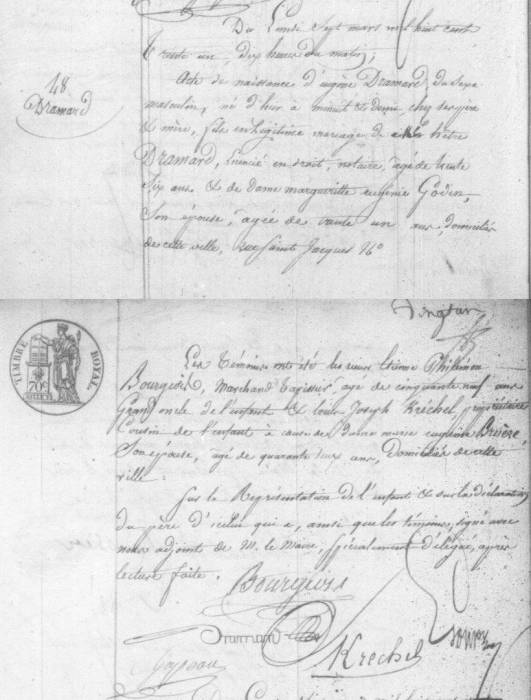 Du Lundi Sept mars mil huit cent
trente un, dix heures du matin;
48
Dramard
Acte de naissance d'eugène Dramard, du sexe
masculin, né d'hier à minuit et demie, chez ses père
et mère, fils en légitime mariage de
Dramard, Licencié en droit, notaire, agé de trente
Six ans et de dame margueritte eugénie Godin,
Son épouse, agée de trente un ans, domiciliés
de cette ville, rue Saint Jacques No
Vingtun
TIMBRE ROYAL
70c
Les témoins ont été les sieurs Philémon
Bourgeois, Marchand Tapissier, agé de cinquante neuf ans
Grand oncle de l'enfant et Louis Joseph Kréchel, propriétaire
Cousin de l'enfant à cause de dame marie eugénie Brière,
Son épouse, agé de quarante deux ans, Domiciliés de cette
ville.
Sur la Représentation de l'enfant et sur la déclaration
du père d'icelui qui a, ainsi que les témoins, signé avec
nous adjoint de M. le Maire, spécialement délégué, après
lecture faite.
Bourgeois
Dramard
Krechel